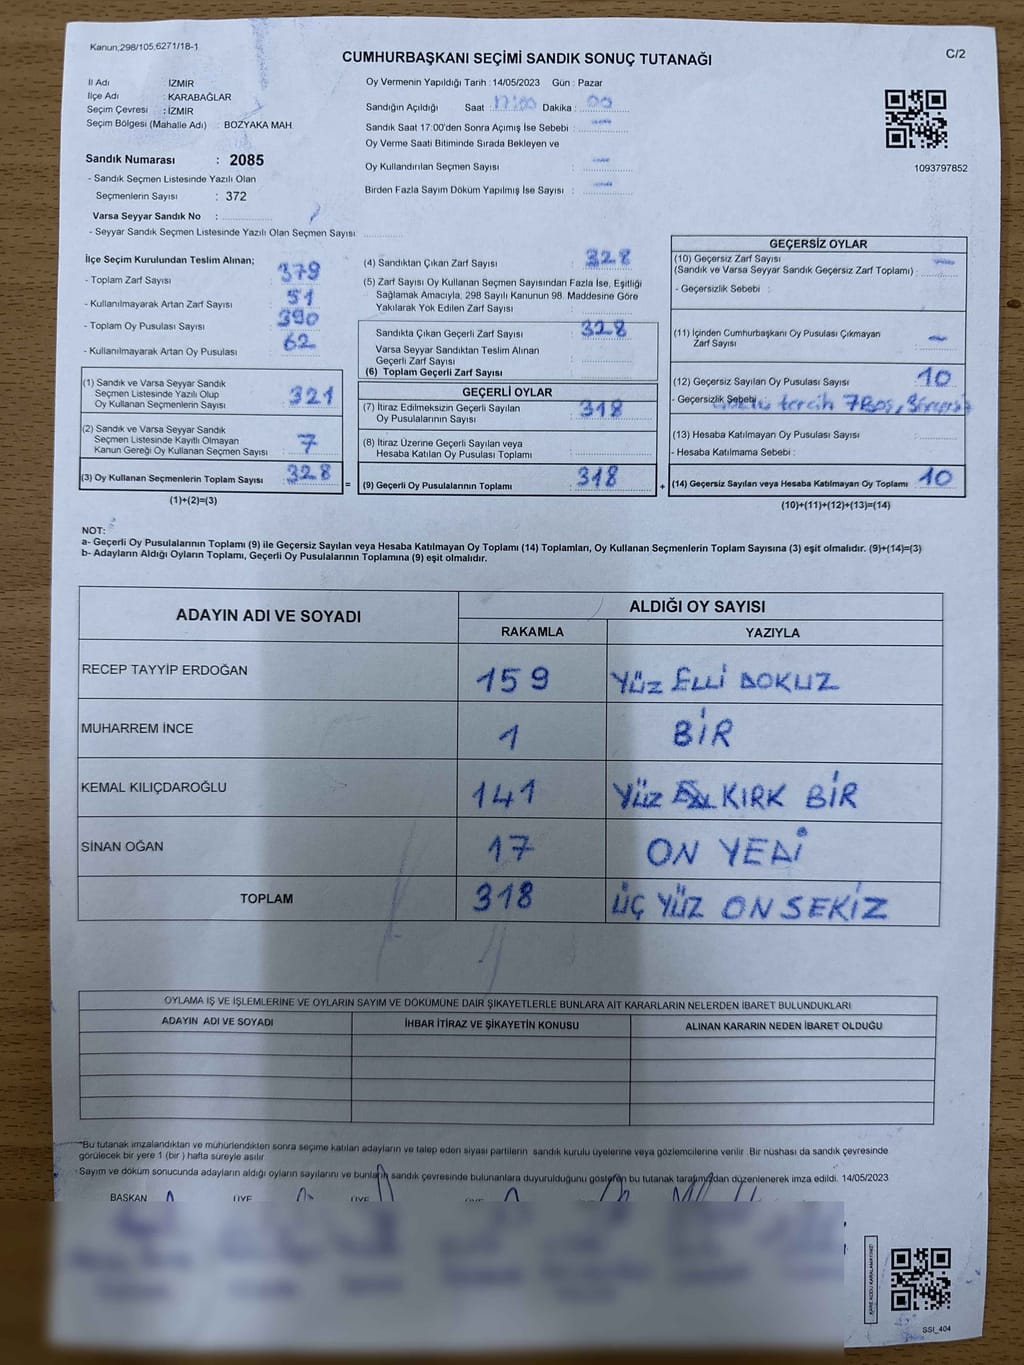 Kanun,298/105,6271/18-1
C/2
CUMHURBAŞKANI SEÇİMİ SANDIK SONUÇ TUTANAĞI
İl Adı : İZMİR
İlçe Adı : KARABAĞLAR
Seçim Çevresi : İZMİR
Seçim Bölgesi (Mahalle Adı) : BOZYAKA MAH.
Sandık Numarası : 2085
- Sandık Seçmen Listesinde Yazılı Olan
Seçmenlerin Sayısı : 372
Varsa Seyyar Sandık No :
- Seyyar Sandık Seçmen Listesinde Yazılı Olan Seçmen Sayısı:
Oy Vermenin Yapıldığı Tarih : 14/05/2023 Gün : Pazar
Sandığın Açıldığı Saat : 17:00 Dakika : 00
Sandık Saat 17:00'den Sonra Açımış İse Sebebi :
Oy Verme Saati Bitiminde Sırada Bekleyen ve
Oy Kullandırılan Seçmen Sayısı :
Birden Fazla Sayım Döküm Yapılmış İse Sayısı :
1093797852
İlçe Seçim Kurulundan Teslim Alınan;
- Toplam Zarf Sayısı : 379
- Kullanılmayarak Artan Zarf Sayısı : 51
- Toplam Oy Pusulası Sayısı : 390
- Kullanılmayarak Artan Oy Pusulası : 62
(1) Sandık ve Varsa Seyyar Sandık
Seçmen Listesinde Yazılı Olup
Oy Kullanan Seçmenlerin Sayısı : 321
(2) Sandık ve Varsa Seyyar Sandık
Seçmen Listesinde Kayıtlı Olmayan
Kanun Gereği Oy Kullanan Seçmen Sayısı : 7
(3) Oy Kullanan Seçmenlerin Toplam Sayısı : 328
(1)+(2)=(3)
=
(4) Sandıktan Çıkan Zarf Sayısı : 328
(5) Zarf Sayısı Oy Kullanan Seçmen Sayısından Fazla İse, Eşitliği
Sağlamak Amacıyla, 298 Sayılı Kanunun 98. Maddesine Göre
Yakılarak Yok Edilen Zarf Sayısı :
Sandıkta Çıkan Geçerli Zarf Sayısı : 328
Varsa Seyyar Sandıktan Teslim Alınan
Geçerli Zarf Sayısı :
(6) Toplam Geçerli Zarf Sayısı :
GEÇERLİ OYLAR
(7) İtiraz Edilmeksizin Geçerli Sayılan
Oy Pusulalarının Sayısı : 318
(8) İtiraz Üzerine Geçerli Sayılan veya
Hesaba Katılan Oy Pusulası Toplamı :
(9) Geçerli Oy Pusulalarının Toplamı : 318
+
GEÇERSİZ OYLAR
(10) Geçersiz Zarf Sayısı
(Sandık ve Varsa Seyyar Sandık Geçersiz Zarf Toplamı) :
- Geçersizlik Sebebi :
(11) İçinden Cumhurbaşkanı Oy Pusulası Çıkmayan
Zarf Sayısı :
(12) Geçersiz Sayılan Oy Pusulası Sayısı : 10
- Geçersizlik Sebebi : tercih 7
(13) Hesaba Katılmayan Oy Pusulası Sayısı :
- Hesaba Katılmama Sebebi :
(14) Geçersiz Sayılan veya Hesaba Katılmayan Oy Toplamı : 10
(10)+(11)+(12)+(13)=(14)
NOT:
a- Geçerli Oy Pusulalarının Toplamı (9) ile Geçersiz Sayılan veya Hesaba Katılmayan Oy Toplamı (14) Toplamları, Oy Kullanan Seçmenlerin Toplam Sayısına (3) eşit olmalıdır. (9)+(14)=(3)
b- Adayların Aldığı Oyların Toplamı, Geçerli Oy Pusulalarının Toplamına (9) eşit olmalıdır.
ADAYIN ADI VE SOYADI
ALDIĞI OY SAYISI
RAKAMLA YAZIYLA
RECEP TAYYİP ERDOĞAN 159 YÜZ ELLİ DOKUZ
MUHARREM İNCE 1 BİR
KEMAL KILIÇDAROĞLU 141 YÜZ KIRK BİR
SİNAN OĞAN 17 ON YEDİ
TOPLAM 318 ÜÇ YÜZ ON SEKİZ
OYLAMA İŞ VE İŞLEMLERİNE VE OYLARIN SAYIM VE DÖKÜMÜNE DAİR ŞİKAYETLERLE BUNLARA AİT KARARLARIN NELERDEN İBARET BULUNDUKLARI
ADAYIN ADI VE SOYADI İHBAR İTİRAZ VE ŞİKAYETİN KONUSU ALINAN KARARIN NEDEN İBARET OLDUĞU
*Bu tutanak imzalandıktan ve mühürlendikten sonra seçime katılan adayların ve talep eden siyasi partilerin sandık kurulu üyelerine veya gözlemcilerine verilir. Bir nüshası da sandık çevresinde
görülecek bir yere 1 (bir ) hafta süreyle asılır.
Sayım ve döküm sonucunda adayların aldığı oyların sayılarını ve bunların sandık çevresinde bulunanlara duyurulduğunu gösteren bu tutanak tarafımızdan düzenlenerek imza edildi. 14/05/2023
BAŞKAN ÜYE ÜYE
SSI_404